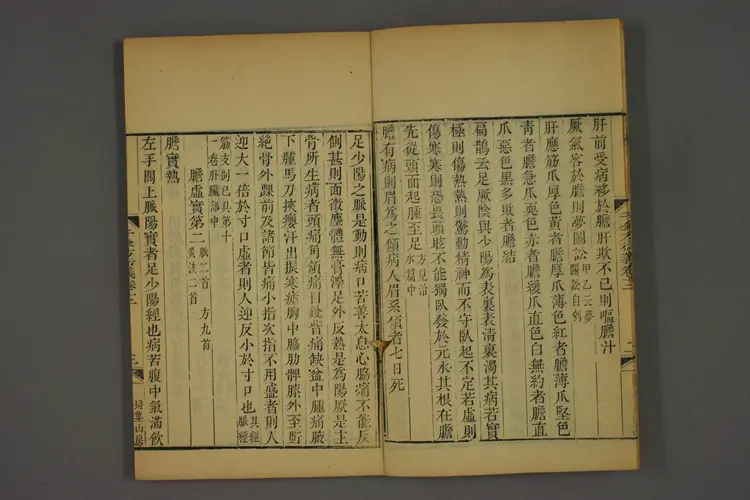 肝前受病移於膽肝欬不已則嘔膽汁
厥氣客於膽則夢鬬訟甲乙云夢鬬訟自刳
肝應筋爪厚色黃者膽厚爪薄色紅者膽薄爪堅色
青者膽急爪耎色赤者膽緩爪直色白無約者膽直
爪惡色黑多敗者膽結
扁鵲云足厥陰與少陽為表裏表清裏濁其病若實
極則傷熱熱則驚動精神而不守臥起不定若虛則
傷寒寒則恐畏頭眩不能獨臥發於元水其根在膽
先從頭面起腫至足方見治水篇中
膽有病則眉為之傾病人眉系傾者七日死
足少陽之脈是動則病口苦善太息心脇痛不能反
側甚則面微塵體無膏澤足外反熱是為陽厥是主
骨所生病者頭痛角頷痛目銳眥痛缺盆中腫痛腋
下腫馬刀挾癭汗出振寒瘧胸中脇肋髀膝外至䯒
絶骨外踝前及諸節皆痛小指次指不用盛者則人
迎大一倍於寸口虛者則人迎反小於寸口也其經脈經
筋支別已具第十一卷肝臟部中
膽虛實第二脈二首 方九首 灸法二首
膽實熱
左手關上脈陽實者足少陽經也病苦腹中氣滿飲
三
掃葉山房